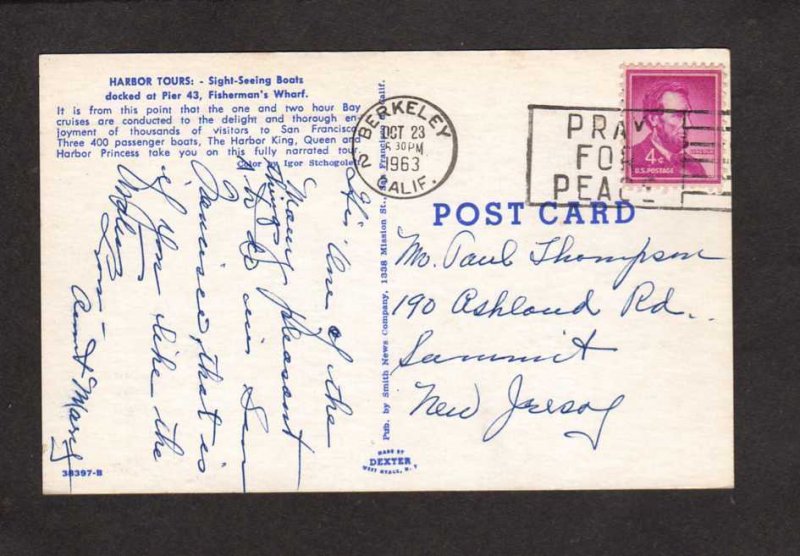 HARBOR TOURS: - Sight-Seeing Boats
docked at Pier 43, Fisherman's Wharf.
It is from this point that the one and two hour Bay
cruises are conducted to the delight and thorough en-
joyment of thousands of visitors to San Francisco
Three 400 passenger boats, The Harbor King, Queen and
Harbor Princess take you on this fully narrated tour.
Color by Igor Stchogolev
One of the
many pleasant
things
to do in San
Francisco, that is
if you like the
Love -
Aunt Mary
38397-B
Pub. by Smith News Company, 1338 Mission St., San Francisco, Calif.
MADE BY
DEXTER
WEST NYACK, N.Y.
BERKELEY
OCT 23
5 30 PM
1963
CALIF.
2
PRAY
FOR
PEACE
4¢
U.S. POSTAGE
POST CARD
Mr. Paul Thompson
190 Ashland Rd.
Summit
New Jersey